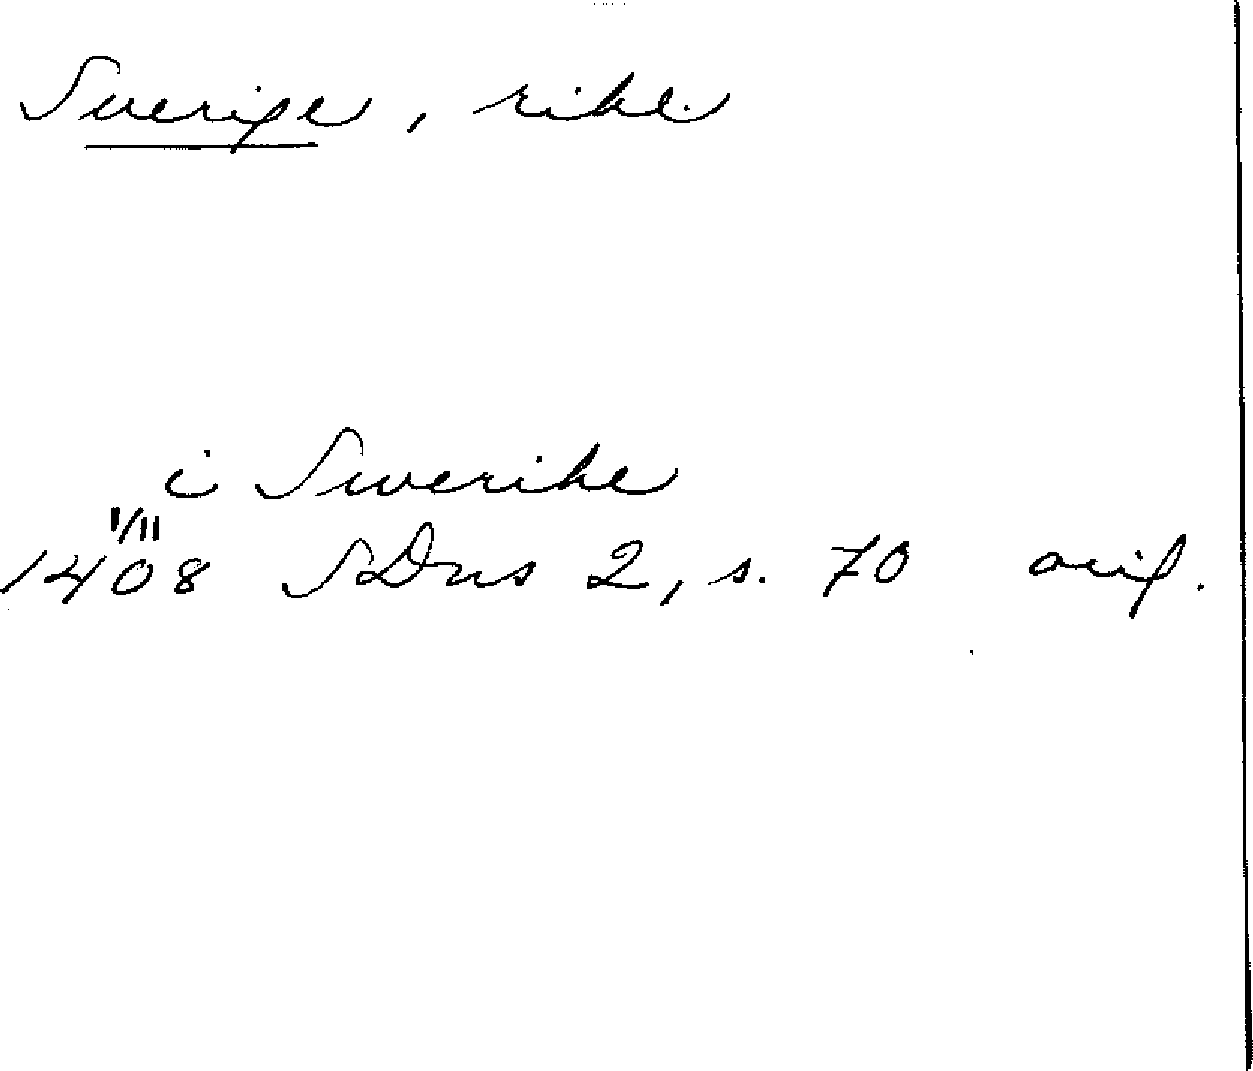 Sverige, rike.
i Swerike
1/11
1408 SDns 2, s. 70 orig.